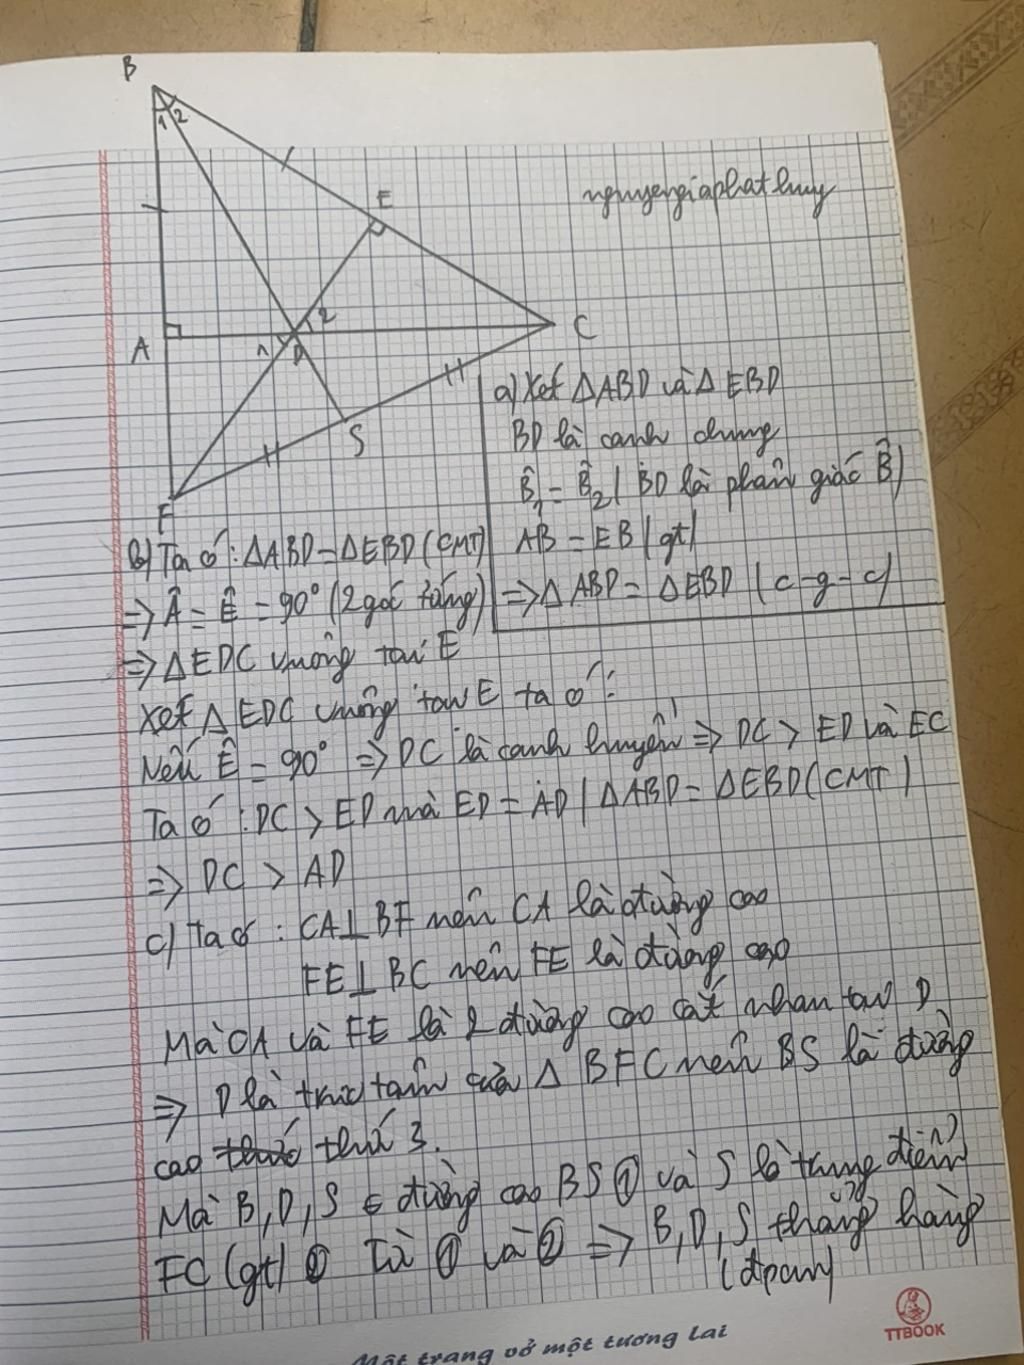 B
1 2
E
nguyengiaphathuy
2
A
C
1 D
S
F
a) Xét ΔABD và ΔEBD
BD là cạnh chung
B̂₁ = B̂₂ ( BD là phân giác B̂)
AB = EB (gt)
=> Δ ABD = ΔEBD (c-g-c)
b) Ta có : ΔABD = ΔEBD (CMT)
=> Â = Ê = 90° (2 góc tứng)
=> ΔEDC vuông tại E
Xét ΔEDC vuông tại E ta có :
Nếu Ê = 90° => DC là cạnh huyền => DC > ED và EC
Ta có : DC > ED mà ED = AD ( ΔABD = ΔEBD (CMT)
=> DC > AD
c) Ta có : CA⊥BF nên CA là đường cao
FE⊥BC nên FE là đường cao
Mà CA và FE là 2 đường cao cắt nhau tại D
=> D là trực tâm của Δ BFC nên BS là đường
cao thứ 3.
Mà B, D, S ∈ đường cao BS ① và S là trung điểm
FC (gt) ② Từ ① và ② => B, D, S thẳng hàng
(đpcm)
Một trang vở một tương lai
TTBOOK